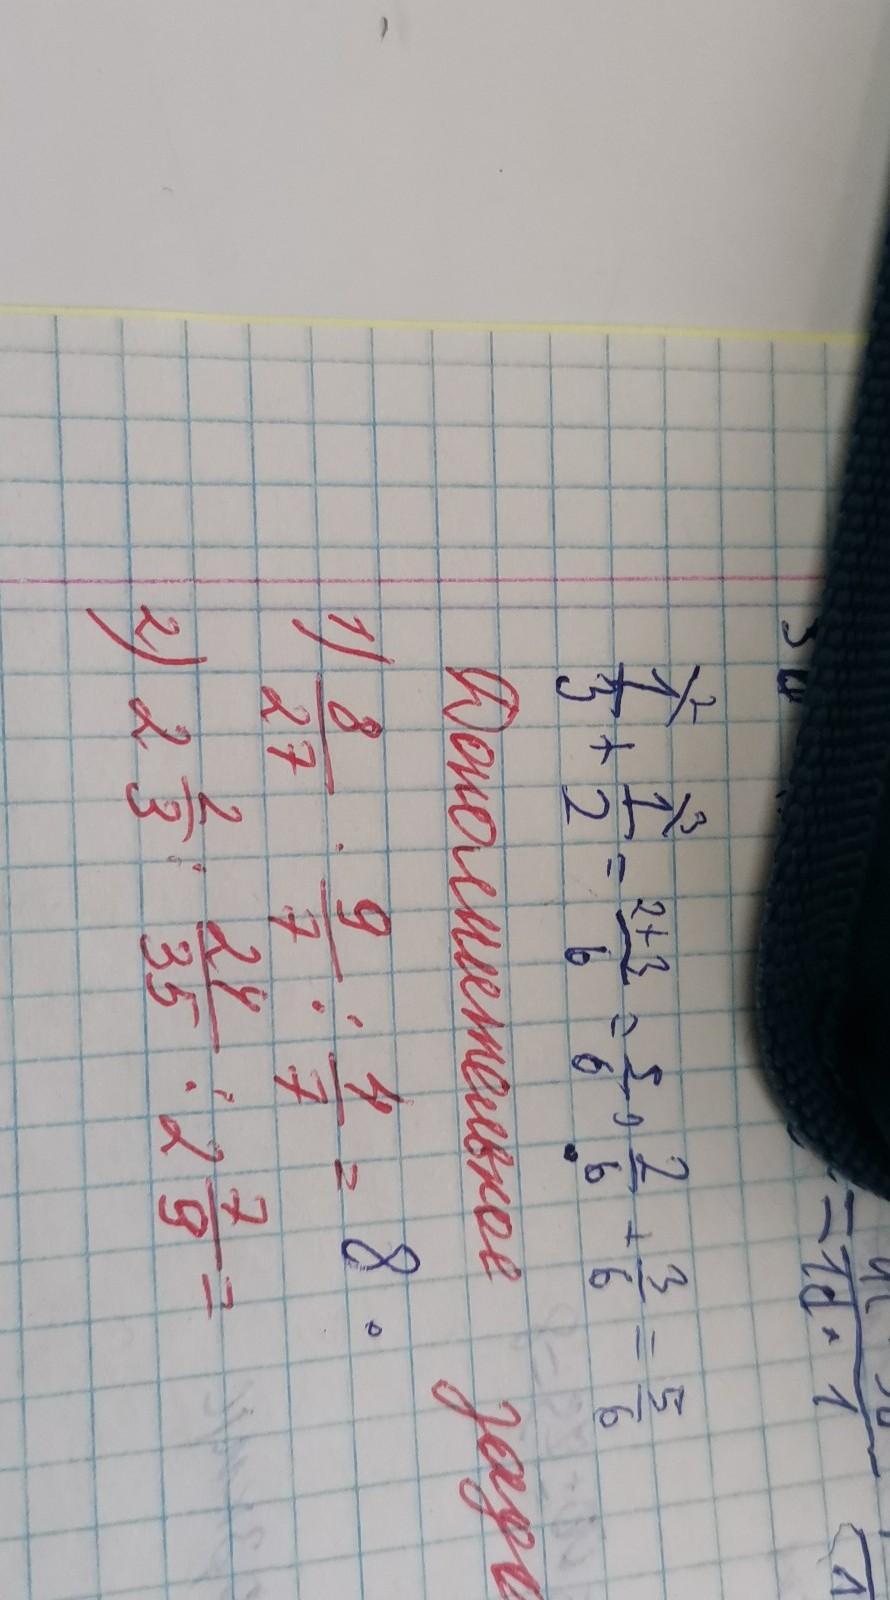 1/3 + 1/2 = 2+3/6 = 5/6, 2/6 + 3/6 = 5/6
Дополнительное
1) 8/27 · 9/7 : 4/7 = 8 ·
2) 2 2/3 : 24/35 : 2 7/9 =